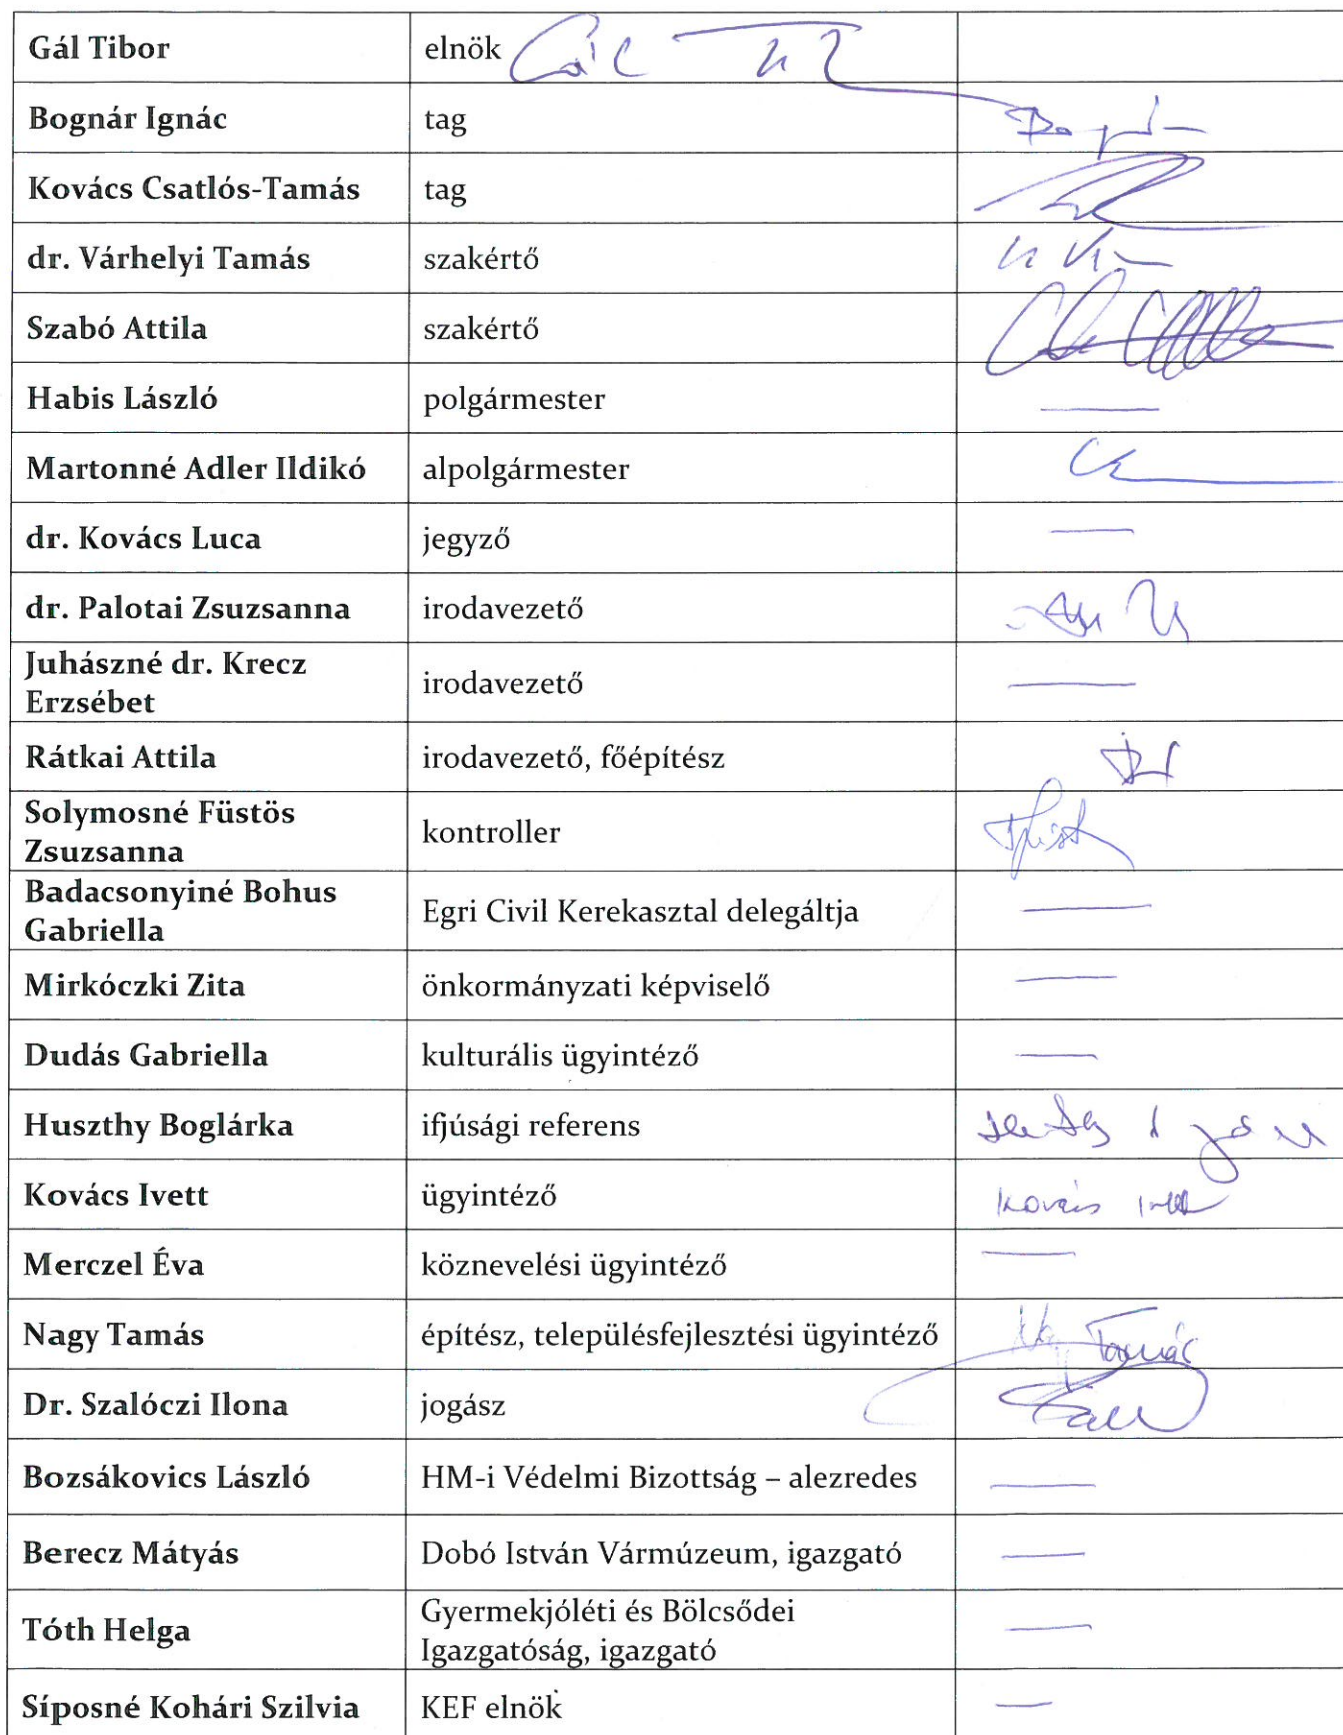 Gál Tibor elnök Gál Ti
Bognár Ignác tag
Kovács Csatlós-Tamás tag
dr. Várhelyi Tamás szakértő
Szabó Attila szakértő
Habis László polgármester —
Martonné Adler Ildikó alpolgármester
dr. Kovács Luca jegyző —
dr. Palotai Zsuzsanna irodavezető
Juhászné dr. Krecz
Erzsébet irodavezető —
Rátkai Attila irodavezető, főépítész
Solymosné Füstös
Zsuzsanna kontroller
Badacsonyiné Bohus
Gabriella Egri Civil Kerekasztal delegáltja —
Mirkóczki Zita önkormányzati képviselő —
Dudás Gabriella kulturális ügyintéző —
Huszthy Boglárka ifjúsági referens
Kovács Ivett ügyintéző Kovács Ivett
Merczel Éva köznevelési ügyintéző —
Nagy Tamás építész, településfejlesztési ügyintéző Nagy Tamás
Dr. Szalóczi Ilona jogász
Bozsákovics László HM-i Védelmi Bizottság – alezredes —
Berecz Mátyás Dobó István Vármúzeum, igazgató —
Tóth Helga Gyermekjóléti és Bölcsődei
Igazgatóság, igazgató —
Síposné Kohári Szilvia KEF elnök —